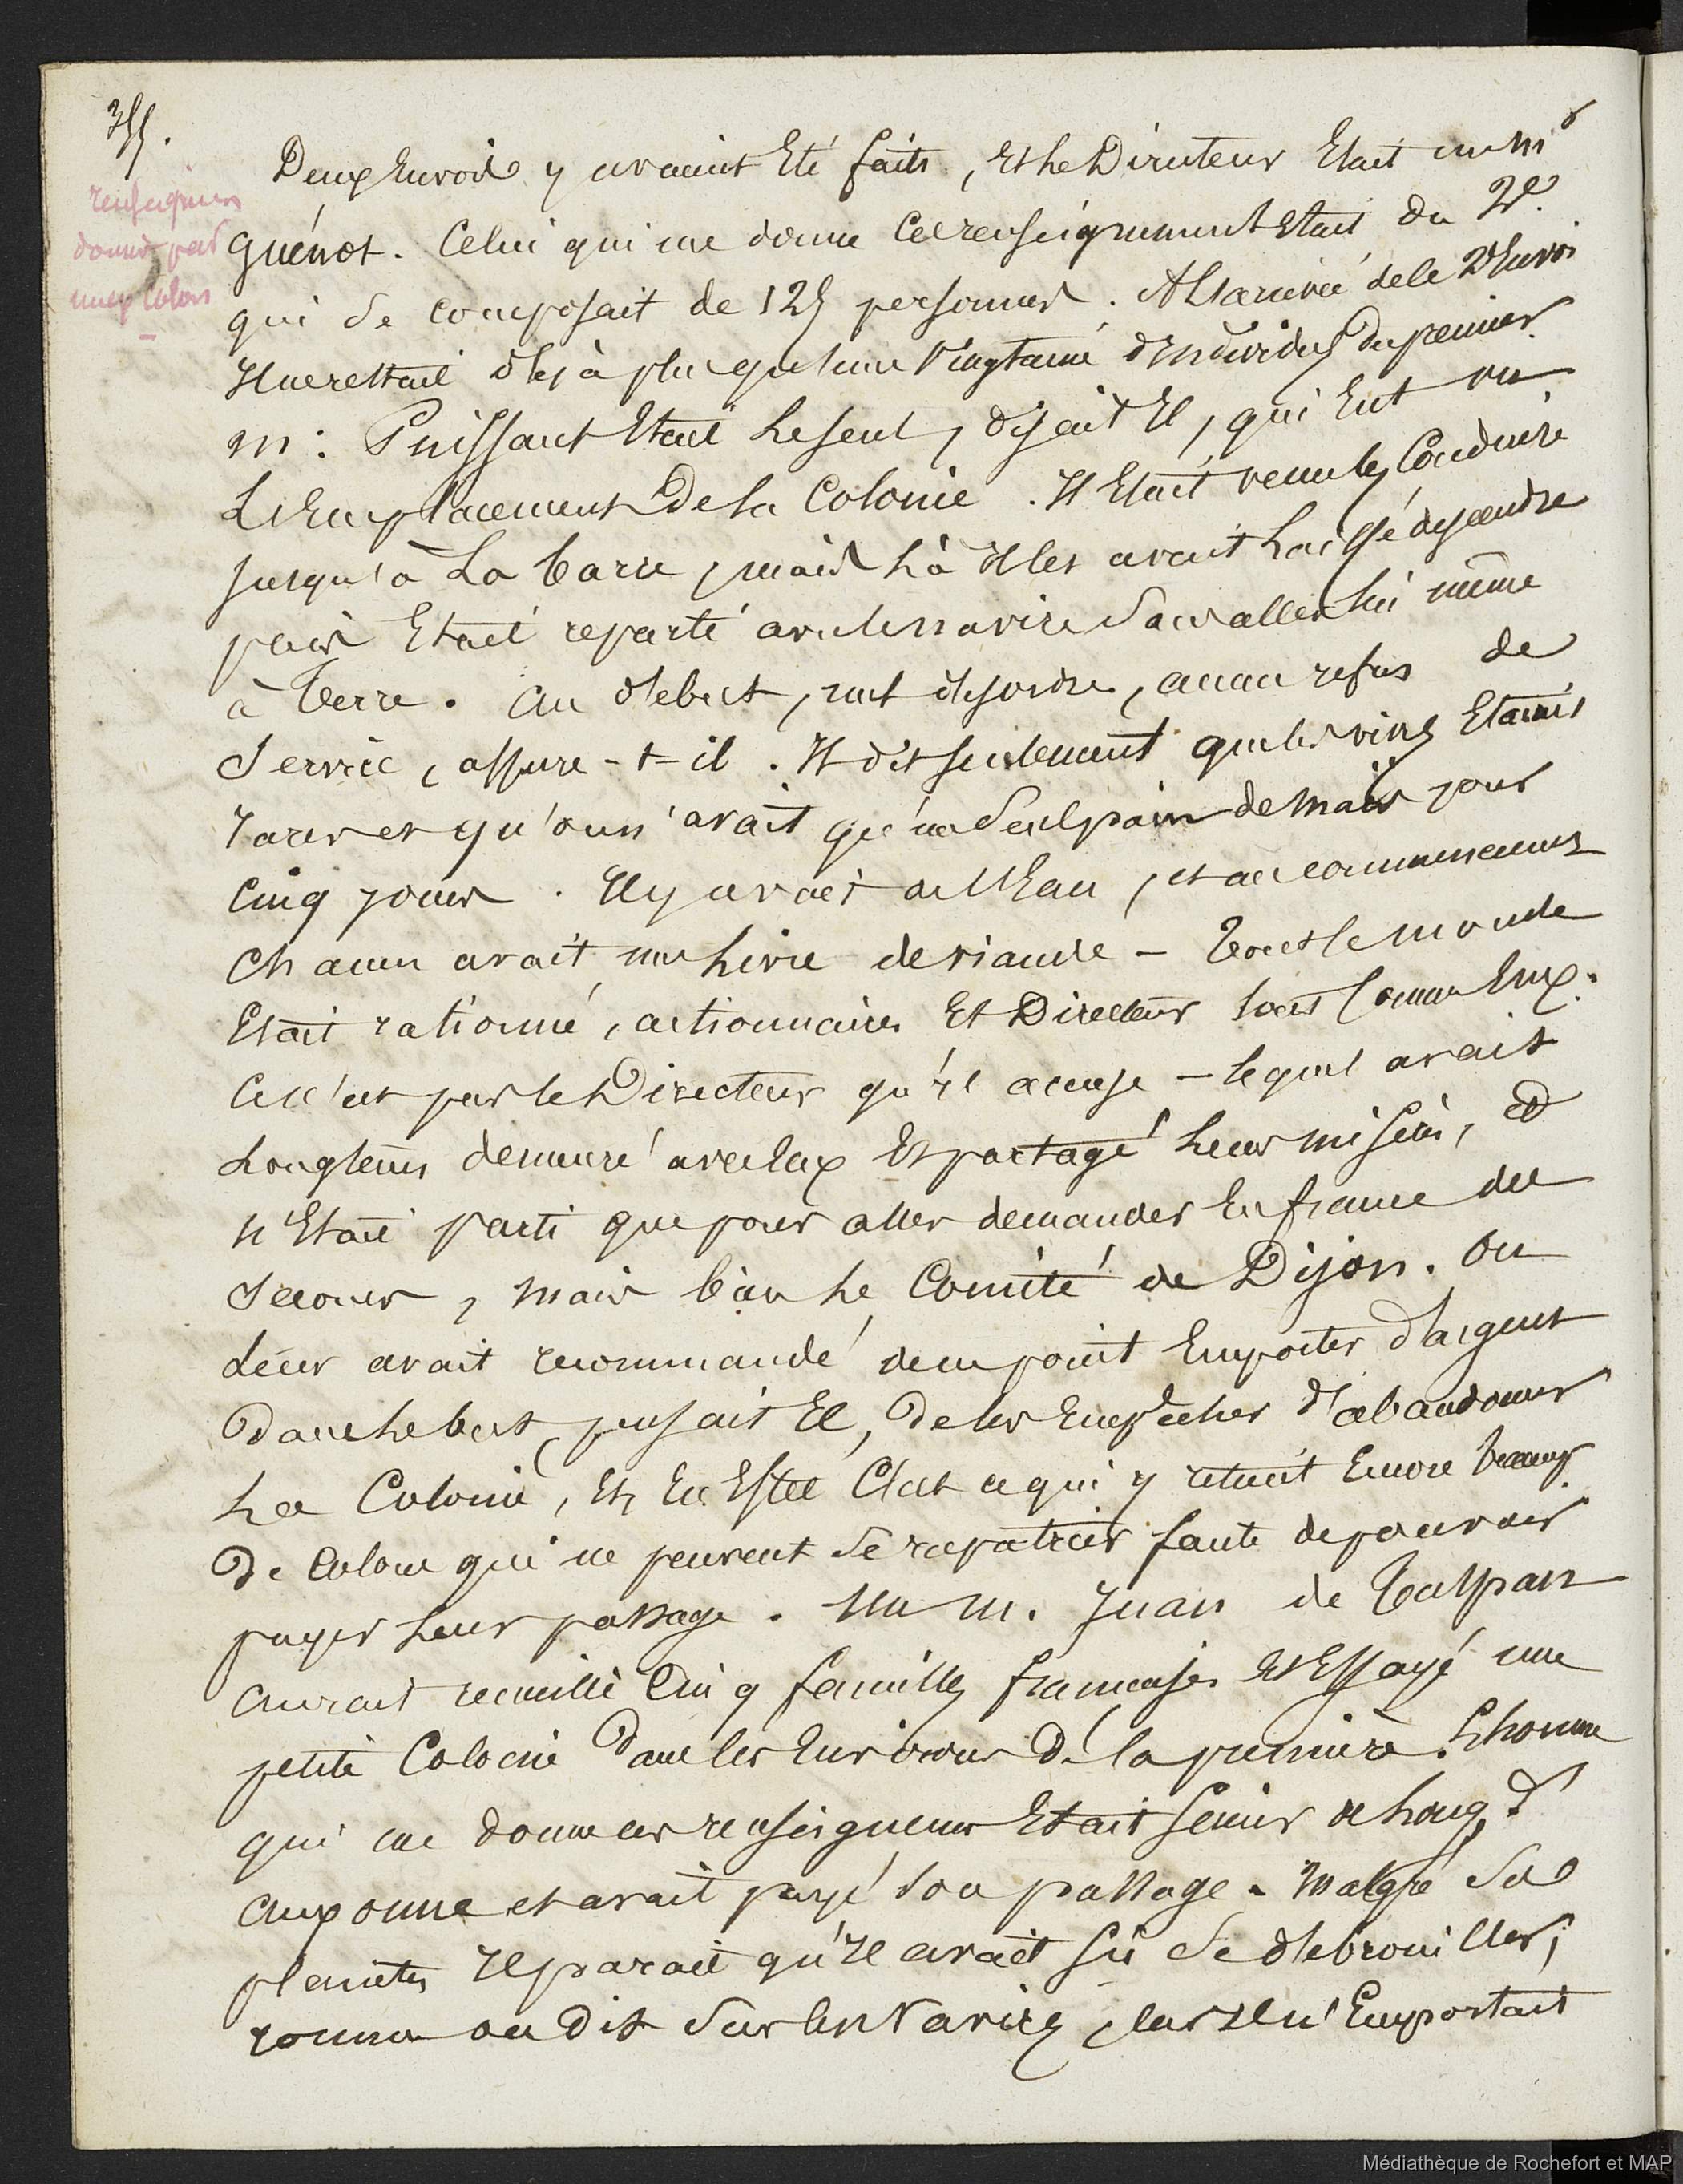 355.
renseignemens
donnés par
un ex colon
Deux Envois y avaient Eté faits, et le Directeur Etait un Mr
Guénot. Celui qui me donne ces renseignemens Etait du 2e.
qui se composait de 125 personnes. A l'arrivée de le 2d Envoi
Il ne restait déjà plus qu'une Vingtaine d'Individus du premier.
M: Puissant Etait le seul, disait Il, qui Eut vu
L'Emplacement De la Colonie. Il Etait venu les Conduire
jusqu'à La barre, mais là Il les avait Laissé descendre
puis Etait reparti avec le navire Sans aller lui même
à Terre. Au début, nul désordre, aucun refus de
Service, assure-t-il. Il dit seulement que les vivres Etaient
rares et qu'on n'avait qu'un Seul pain de maïs pour
Cinq jours. Il y avait de l'Eau, et au commencement
Chacun avait une Livre de viande - Tout le monde
Etait rationné, actionnaires Et Directeur tout comme Eux.
Ce n'est pas le Directeur qu'il accuse - lequel avait
Longtems demeuré avec Eux Et partagé Leur misère, et
n'Etait parti que pour aller demander En france des
Secours, mais bien le Comité de Dijon. On
Leur avait recommandé de ne point Emporter d'argent
Dans le but, pensait Il, De les Empêcher d'abandonner
La Colonie, Et, En Effet C'est ce qui y retient Encore beaucoup
De Colons qui ne peuvent Se rapatrier faute de pouvoir
payer leur passage. Un M. Juan de Talpan
aurait recueilli Cinq familles françaises Et Essayé une
petite Colonie Dans les Environs De la première. L'homme
qui me donne ces renseignemens Etait fermier de Long. d'
auxonne et avait payé son passage. Malgré Ses
plaintes Il parait qu'Il avait su Se débrouiller,
comme on dit Sur les Navires, car Il n'Emportait
Médiathèque de Rochefort et MAP